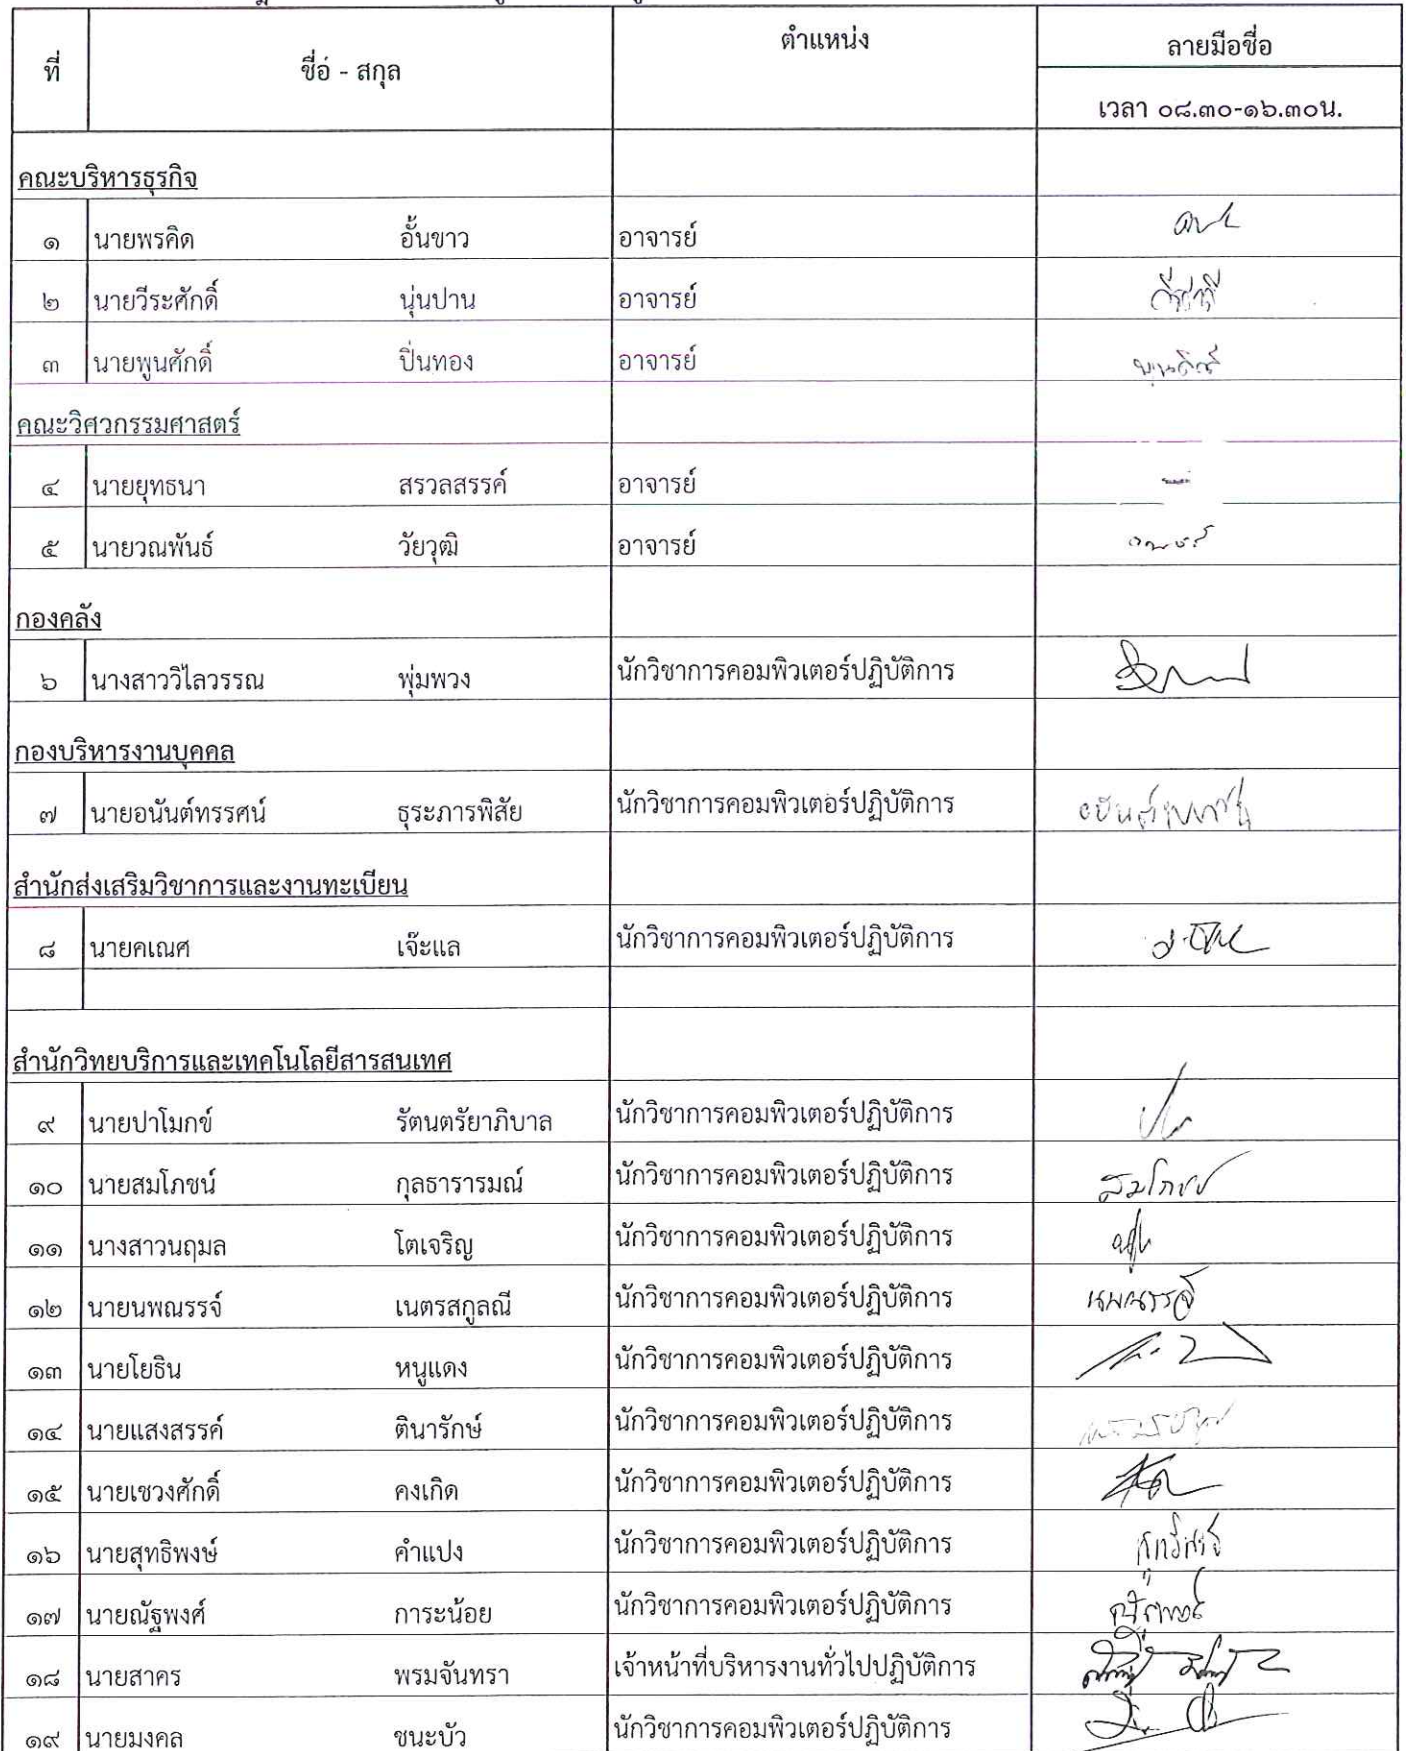 ที่ ชื่อ - สกุล ตำแหน่ง ลายมือชื่อ
เวลา ๐๘.๓๐-๑๖.๓๐น.
คณะบริหารธุรกิจ
๑ นายพรคิด อั้นขาว อาจารย์
๒ นายวีระศักดิ์ นุ่นปาน อาจารย์
๓ นายพูนศักดิ์ ปิ่นทอง อาจารย์ พูนศักดิ์
คณะวิศวกรรมศาสตร์
๔ นายยุทธนา สรวลสรรค์ อาจารย์
๕ นายวณพันธ์ วัยวุฒิ อาจารย์
กองคลัง
๖ นางสาววิไลวรรณ พุ่มพวง นักวิชาการคอมพิวเตอร์ปฏิบัติการ
กองบริหารงานบุคคล
๗ นายอนันต์ทรรศน์ ธุระภารพิสัย นักวิชาการคอมพิวเตอร์ปฏิบัติการ
สำนักส่งเสริมวิชาการและงานทะเบียน
๘ นายคเณศ เจ๊ะแล นักวิชาการคอมพิวเตอร์ปฏิบัติการ
สำนักวิทยบริการและเทคโนโลยีสารสนเทศ
๙ นายปาโมกข์ รัตนตรัยาภิบาล นักวิชาการคอมพิวเตอร์ปฏิบัติการ
๑๐ นายสมโภชน์ กุลธารารมณ์ นักวิชาการคอมพิวเตอร์ปฏิบัติการ สมโภชน์
๑๑ นางสาวนฤมล โตเจริญ นักวิชาการคอมพิวเตอร์ปฏิบัติการ
๑๒ นายนพณรรจ์ เนตรสกูลณี นักวิชาการคอมพิวเตอร์ปฏิบัติการ นพณรรจ์
๑๓ นายโยธิน หนูแดง นักวิชาการคอมพิวเตอร์ปฏิบัติการ
๑๔ นายแสงสรรค์ ตินารักษ์ นักวิชาการคอมพิวเตอร์ปฏิบัติการ
๑๕ นายเชวงศักดิ์ คงเกิด นักวิชาการคอมพิวเตอร์ปฏิบัติการ
๑๖ นายสุทธิพงษ์ คำแปง นักวิชาการคอมพิวเตอร์ปฏิบัติการ
๑๗ นายณัฐพงศ์ การะน้อย นักวิชาการคอมพิวเตอร์ปฏิบัติการ
๑๘ นายสาคร พรมจันทรา เจ้าหน้าที่บริหารงานทั่วไปปฏิบัติการ
๑๙ นายมงคล ชนะบัว นักวิชาการคอมพิวเตอร์ปฏิบัติการ